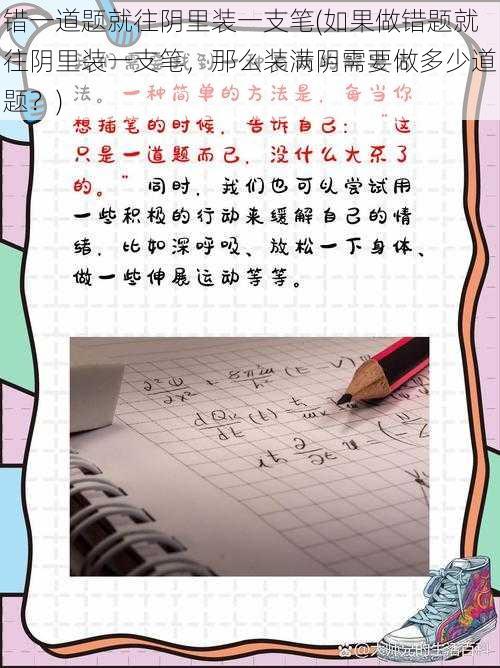 错一道题就往阴里装一支笔(如果做错题就
往阴里装一支笔，那么装满阴需要做多少道
题？)
法。一种简单的方法是，每当你
想插笔的时候，告诉自己：“这
只是一道题而已，没什么大不了
的。”同时，我们也可以尝试用
一些积极的行动来缓解自己的情
绪，比如深呼吸、放松一下身体、
做一些伸展运动等等。
大师兄的生活百科